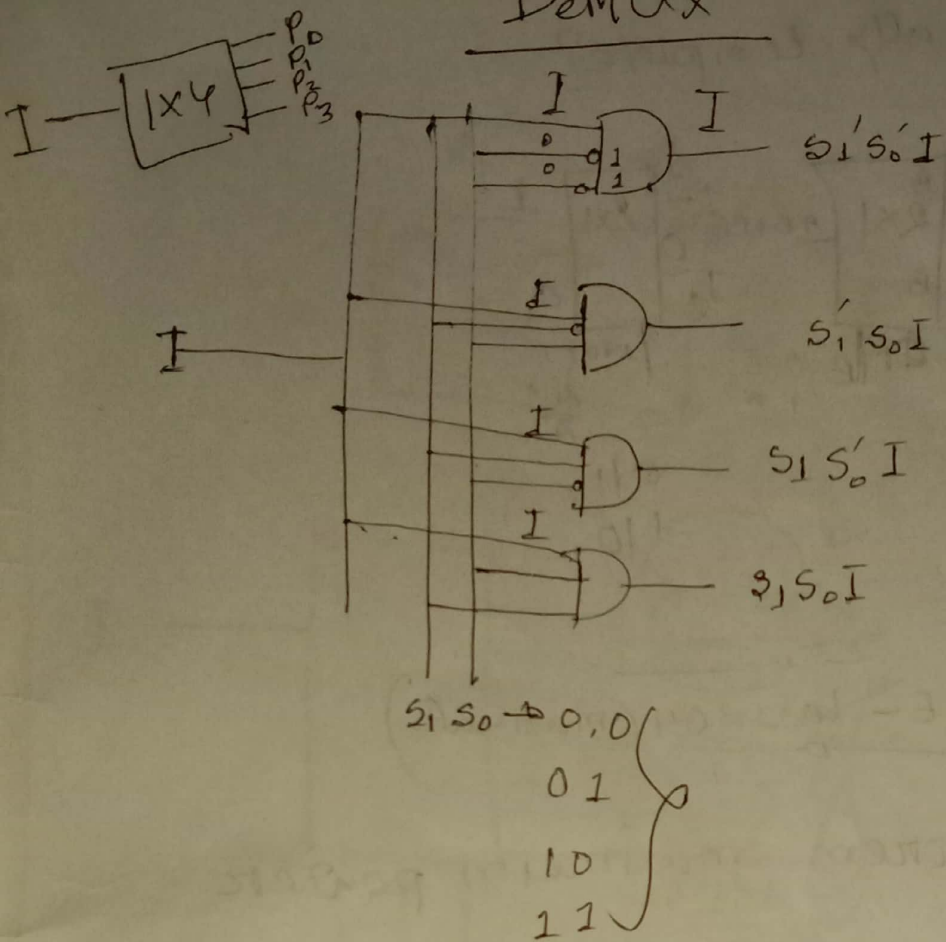 DeMUX
I 1x4 P0
P1
P2
P3
I I S1'S0'I
0 1
0 1
I S1'S0I
I
I S1S0'I
I S1S0I
S1 S0 → 0,0
0 1
1 0
1 1